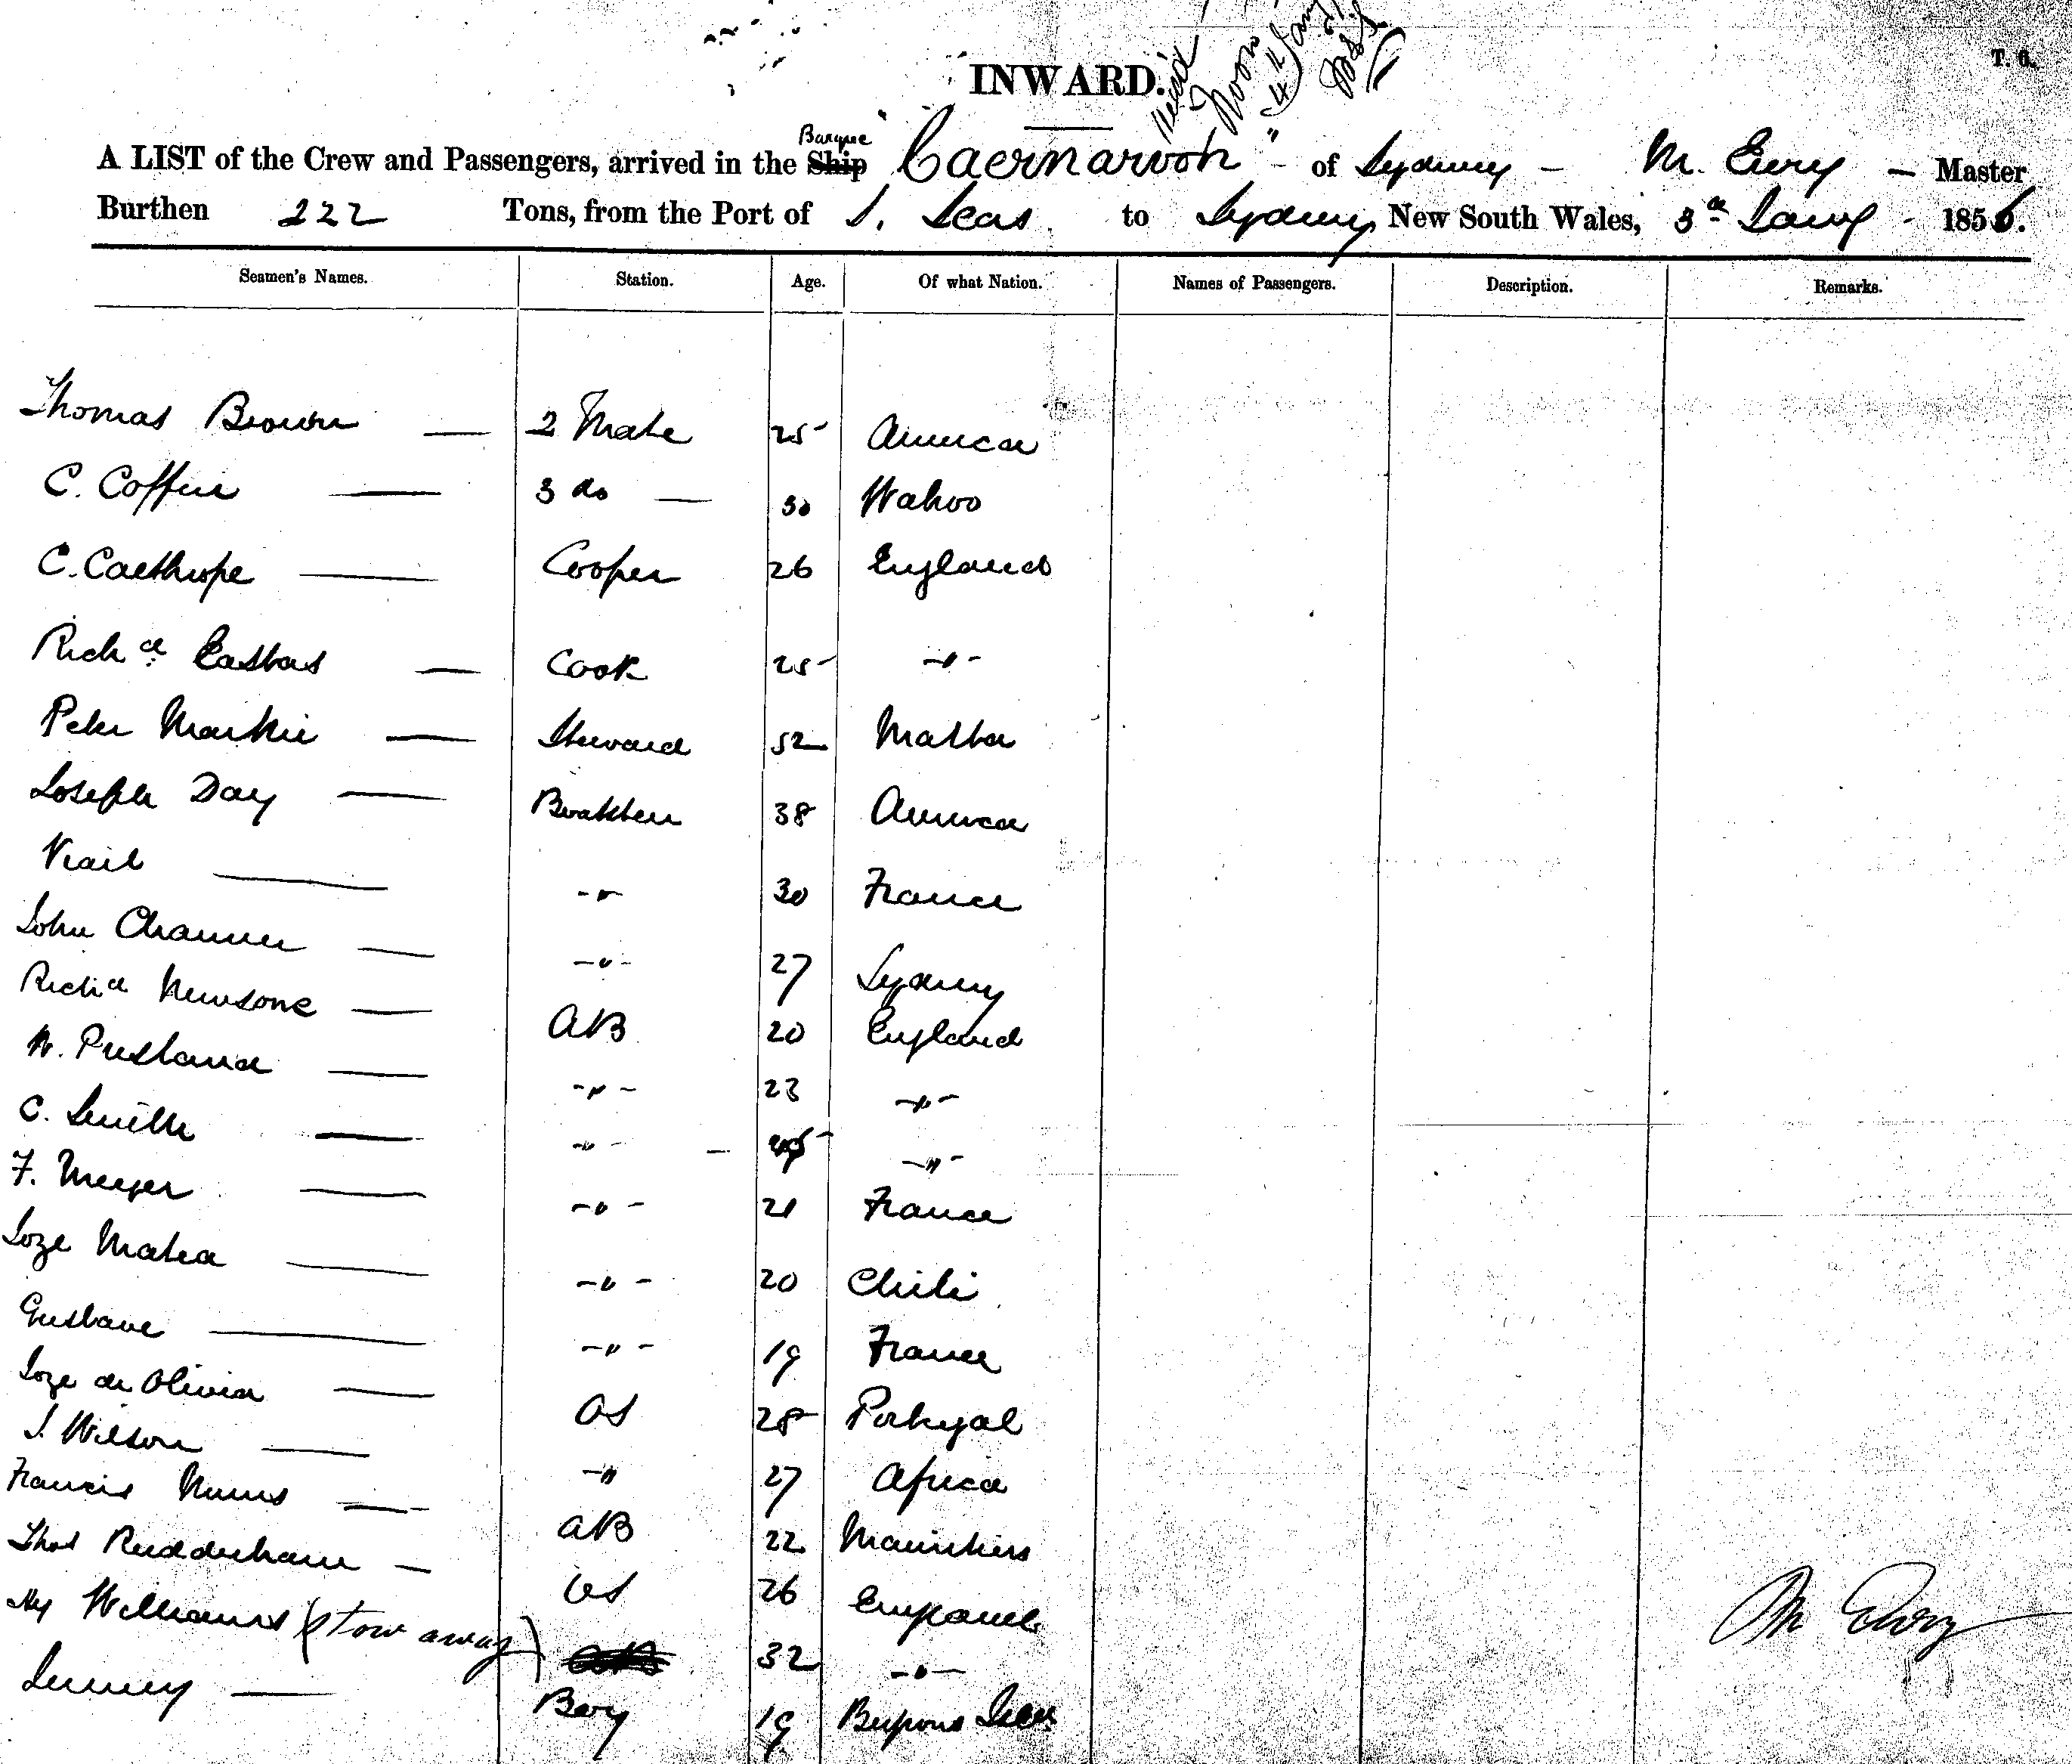 T. 6.
Noon
INWARD.
Barque
A LIST of the Crew and Passengers, arrived in the Ship "Caernarvon" - of Sydney - M. Ewry - Master
Burthen 222 Tons, from the Port of S. Seas. to Sydney New South Wales, 3rd Jany - 1856.
Seamen's Names. Station. Age. Of what Nation. Names of Passengers. Description. Remarks.
Thomas Brown — 2 Mate 25 America
C. Coffin — 3 do — 30 Wahoo
C. Caelthrope — Cooper 26 England
Richd — Cook 25 - " -
Peter — Steward 52 Malta
Joseph Day — 38 America
— - " - 30 France
John — - " - 27 Sydney
Richd Newsome — AB 20 England
— - " - 23 - " -
C. — - " - — - " -
F. Meyer — - " - 21 France
Joze — - " - 20 Chili
Gustave — - " - 19 France
Joze de Olivia — OS 28 Portugal
J. Wilson — - " 27 Africa
Francis — AB 22 Mauritius
Thos Rudderham — OS 26 England
Hy Williams (stow away) 32 - " -
— Boy 19 Isles
M Ewry